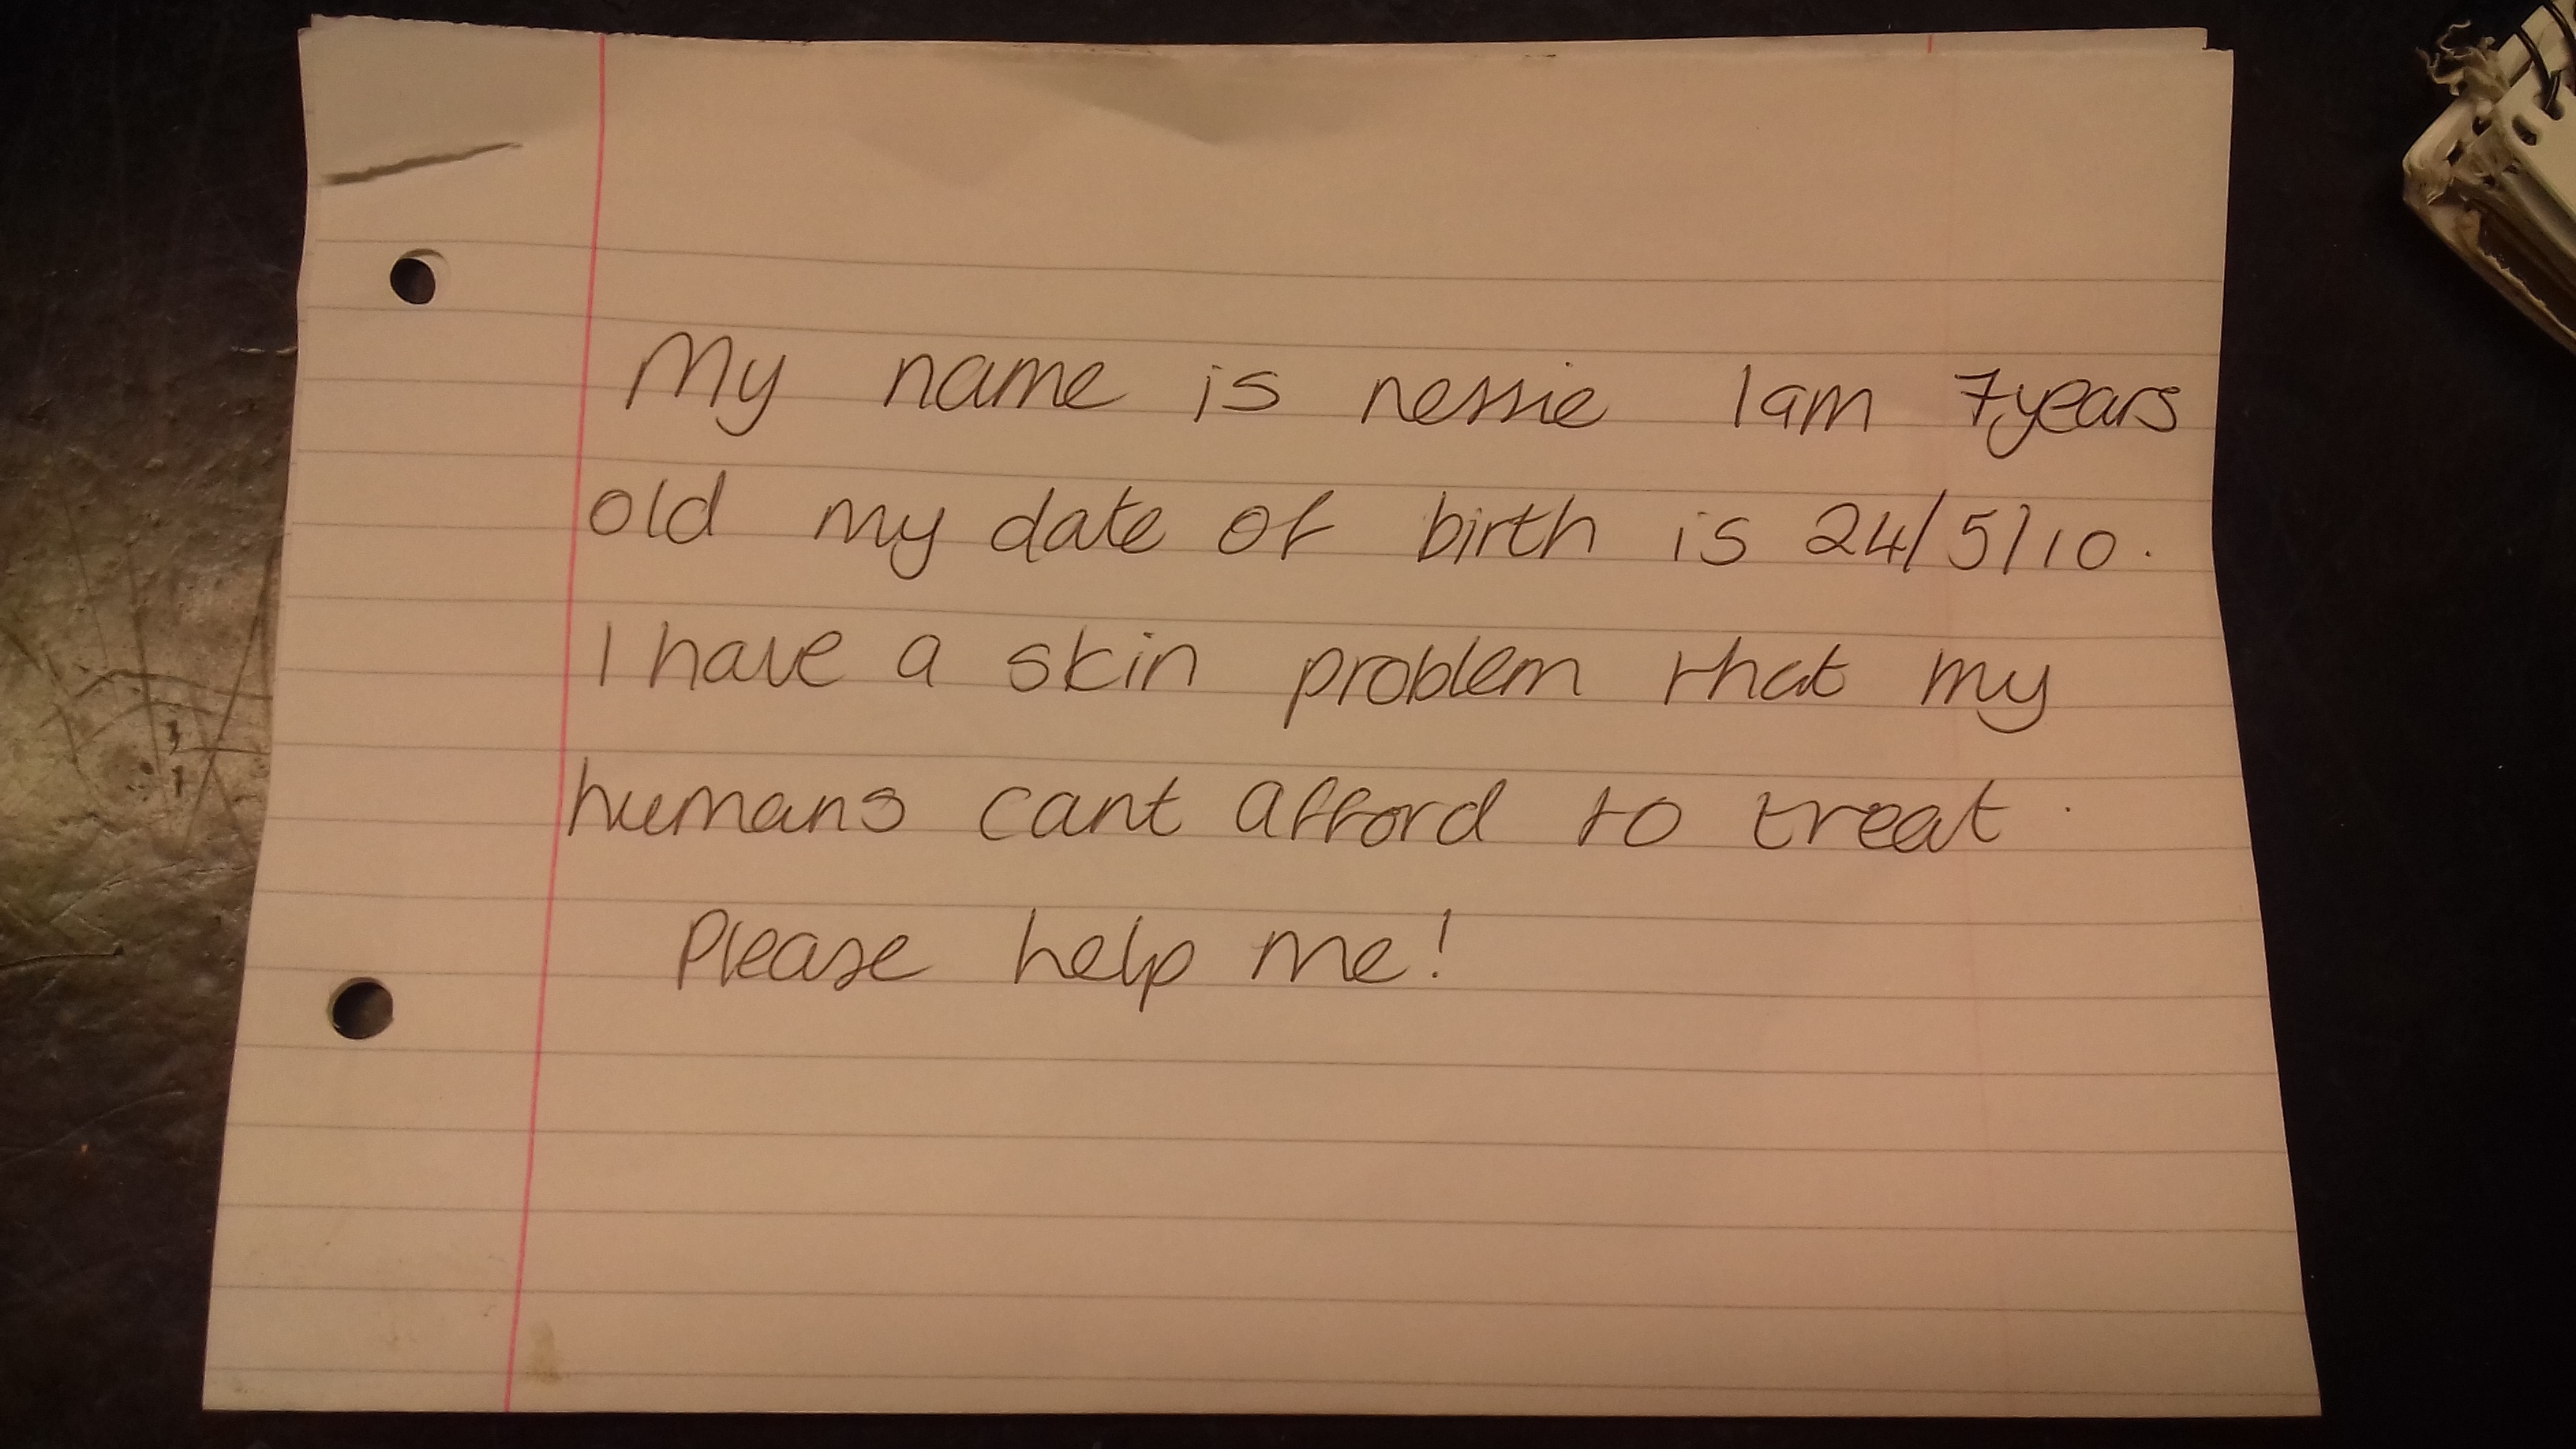 My name is nessie I am 7years
old my date of birth is 24/5/10.
I have a skin problem that my
humans cant afford to treat.
Please help me!